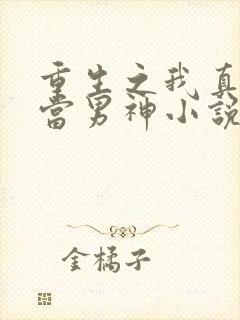 重生之我真
當男神小說
金橘子